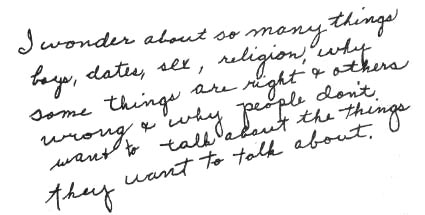 I wonder about so many things
boys, dates, sex, religion, why
some things are right & others
wrong & why people don't
want to talk about the things
they want to talk about.